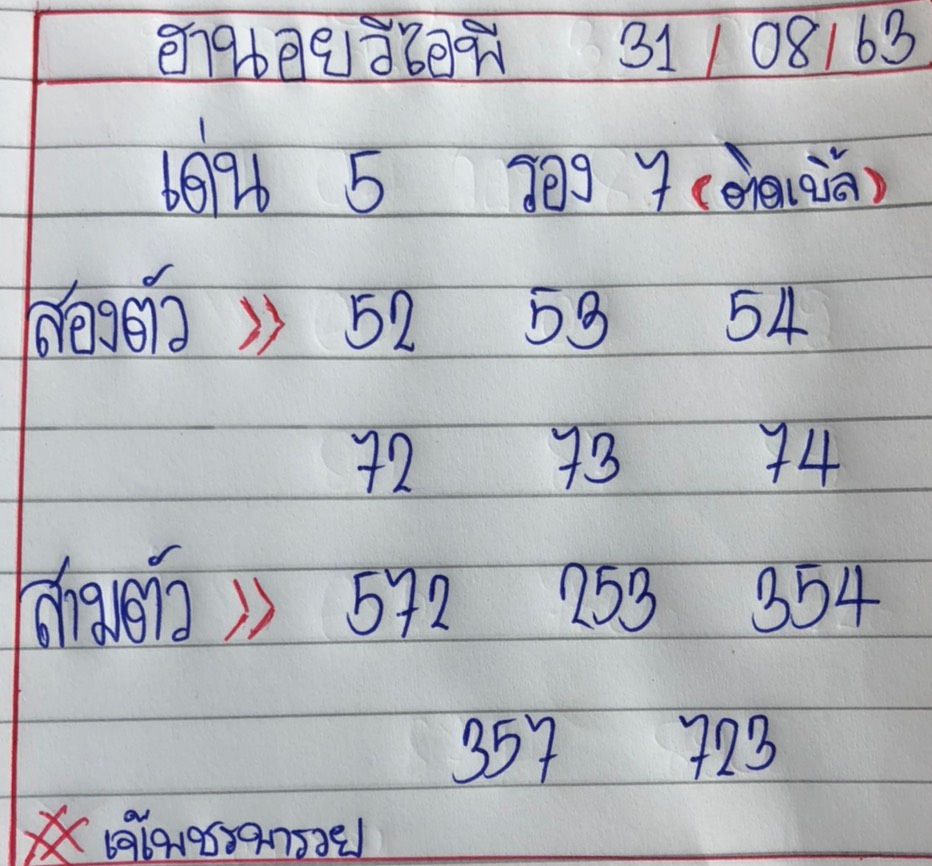 ฮานอยวีไอพี 31/08/63
เด่น 5 รอง 7 (ติดเบิ้ล)
สองตัว >> 52 53 54
72 73 74
สามตัว >> 572 253 354
357 723
เจ๊เพชรพารวย